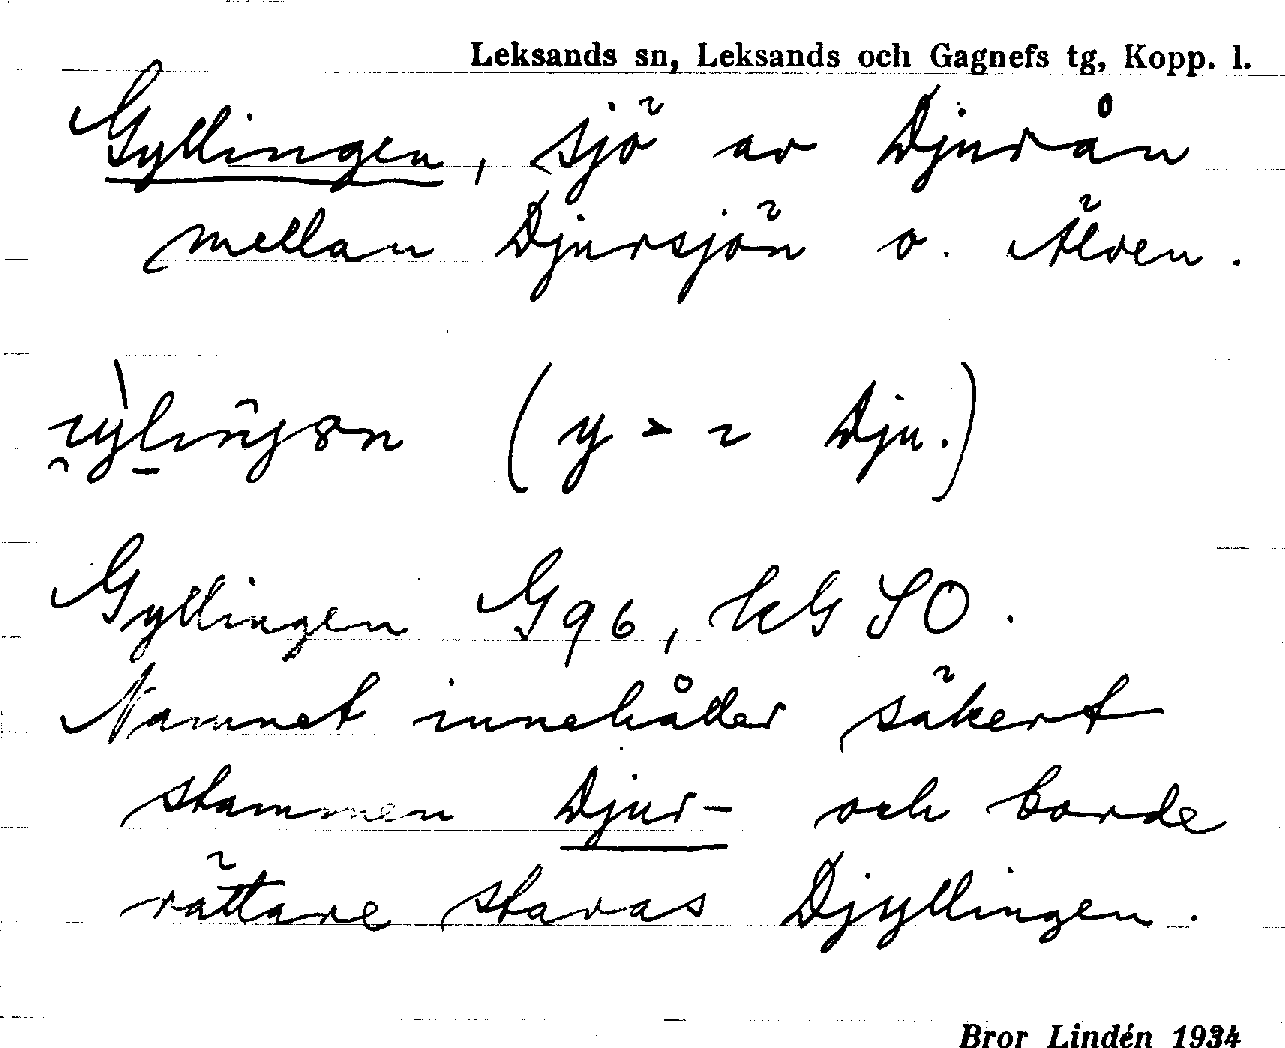 Leksands sn, Leksands och Gagnefs tg, Kopp. l.
Gyllingen, sjö av Djurån
mellan Djursjön o. Älven.
(y > ı Dju.)
Gyllingen G 96, kG SO.
Namnet innehåller säkert
stammen Djur- och borde
rättare stavas Djyllingen.
Bror Lindén 1934